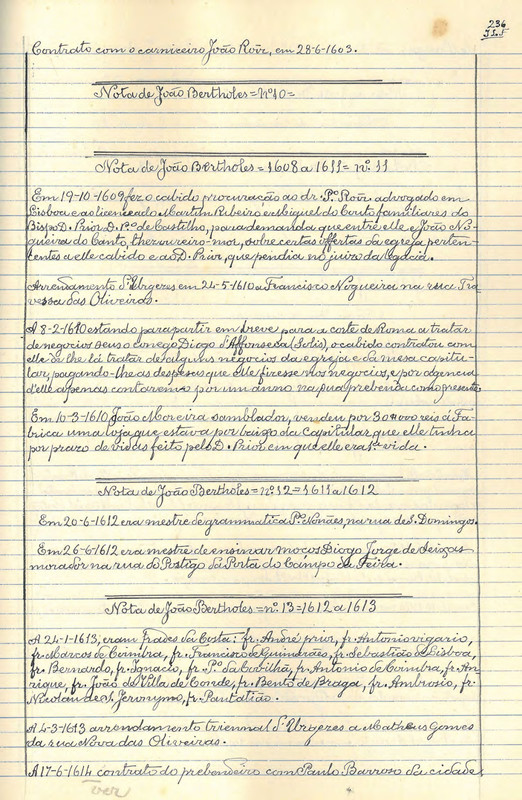 236
Contrato com o carniceiro João Roiz, em 28-6-1603.
Nota de João Bertholes = nº 10 =
Nota de João Bertholes = 1608 a 1611 = nº 11
Em 19-10-1609 fez o cabido procuração ao dr. Pº Roiz advogado em
Lisboa e ao licenceado Martim Ribeiro e Miguel do Couto familiares do
Bispo D. Prior D. Pº de Castilho, para demanda que entre elle e João No-
gueira do Canto, thezoureiro-mor, sobre certas offertas da egreja perten-
centes a elle cabido e ao D. Prior, que pendia no juizo da Legacia.
Arrendamento d'Urgeres em 24-5-1610 a Francisco Nogueira na rua Tra-
vessa das Oliveiras.
A 8-2-1610 estando para partir em breve para a corte de Roma a tratar
de negocios seus o conego Diogo d'Affonseca (Solis), o cabido contratou com
elle de lhe lá tratar de alguns negocios da egreja e da mesa capitu-
lar, pagando-lhe as despesas que elle fizesse nos negocios, e por agencia
d'elle apenas contarem-o por um anno na sua prebenda como presente.
Em 10-3-1610 João Moreira samblador, vendeu por 30000 reis á Fa-
brica uma loja que estava por baixo da Capitular, que elle tinha
por prazo de vidas feito pelo D. Prior em que elle era 1ª vida.
Nota de João Bertholes = nº 12 = 1611 a 1612
Em 20-6-1612 era mestre de grammatica Pº Nonães, na rua de S. Domingos.
Em 26-6-1612 era mestre de ensinar moços Diogo Jorge de Seixas
morador na rua do Postigo da Porta do Campo da Feira.
Nota de João Bertholes = nº 13 = 1612 a 1613
A 24-1-1613, eram Frades da Costa: fr. André prior, fr. Antonio vigario,
fr. Marcos de Coimbra, fr. Francisco de Guimarães, fr. Sebastião de Lisboa,
fr. Bernardo, fr. Ignacio, fr. Pº da Covilhã, fr. Antonio de Coimbra, fr. An-
rique, fr. João de Villa de Conde, fr. Bento de Braga, fr. Ambrosio, fr.
Nicolau de S. Jeronymo, fr. Pantalião.
A 4-3-1613 arrendamento triennal d'Urgezes a Matheus Gomes
da rua Nova das Oliveiras.
A 17-6-1614 contrato do prebendeiro com Paulo Barroso da cidade
ver